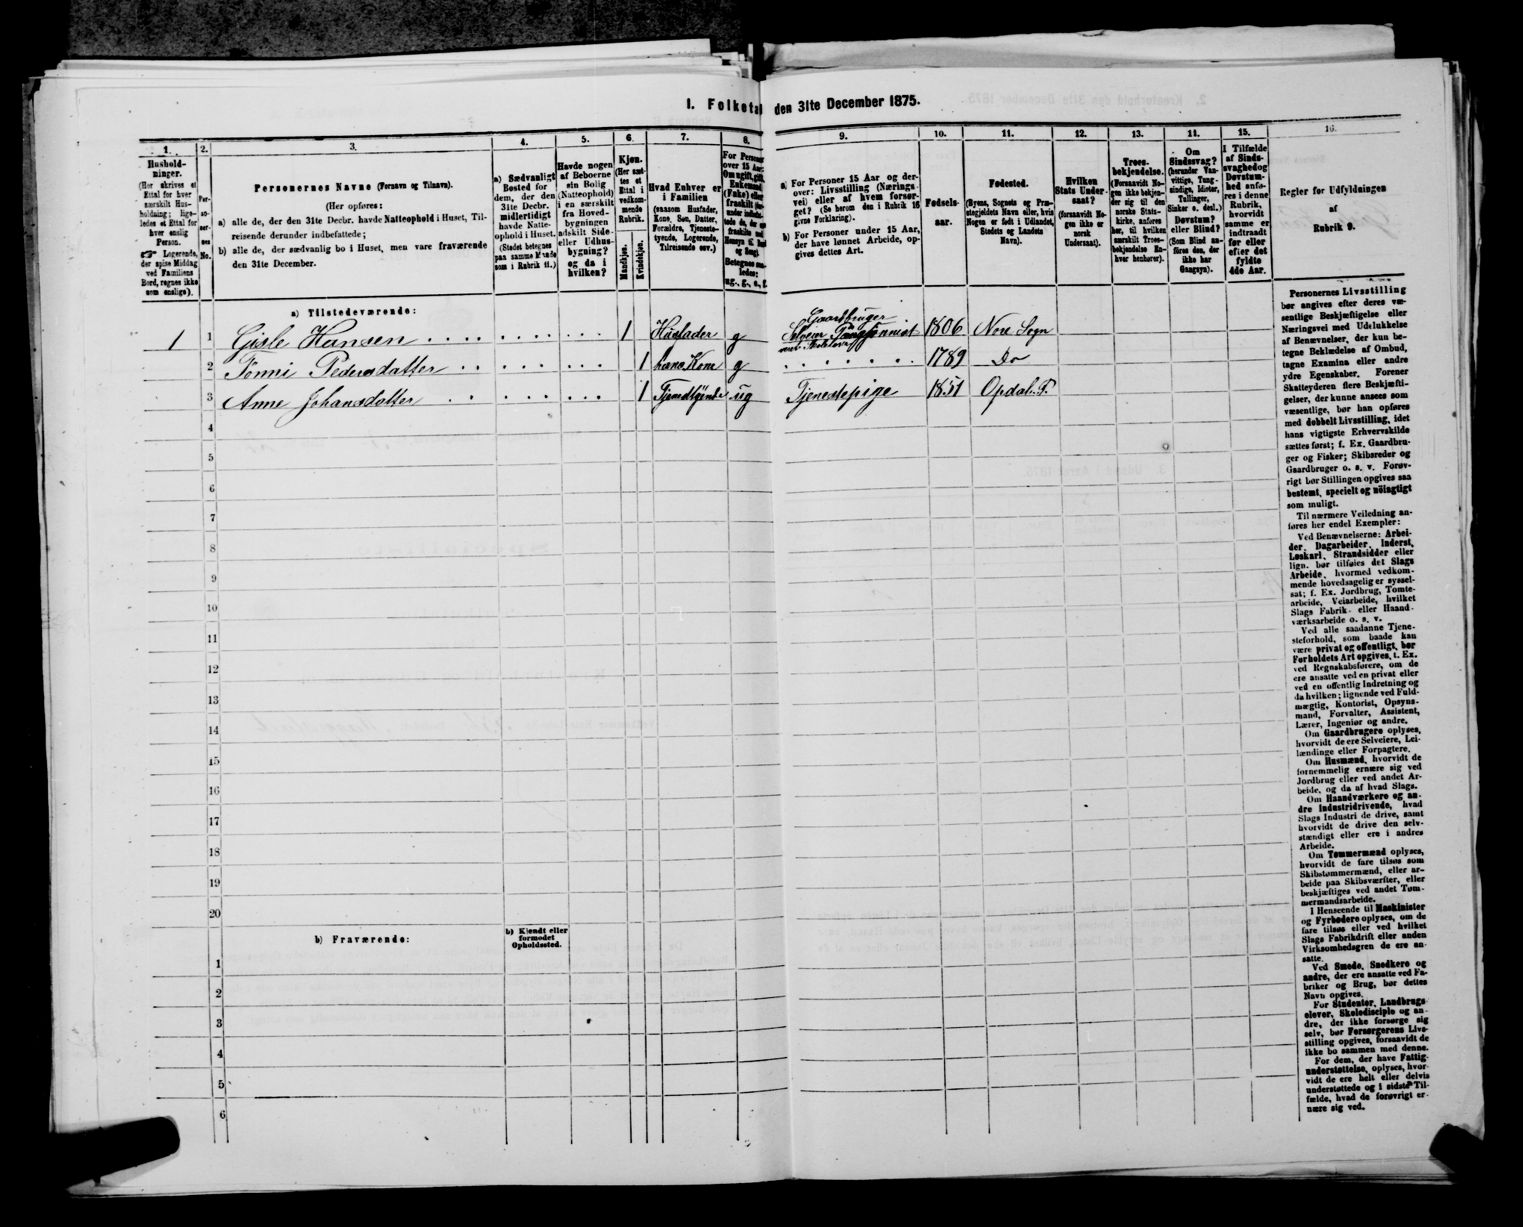 I. Folketal den 31te December 1875.
1.
Hushold-
ninger.
(Her skrives et
Ettal for hver
særskilt Hus-
holdning; lige-
ledes et Ettal for
hver enslig
Person.
Logerende,
der spise Middag
ved Familiens
Bord, regnes ikke
som enslige).
2.
Per-
so-
ner-
nes
No.
3.
Personernes Navne (Fornavn og Tilnavn).
(Her opføres:
a) alle de, der den 31te Decbr. havde Natteophold i Huset, Til-
reisende derunder indbefattede;
b) alle de, der sædvanlig bo i Huset, men vare fraværende
den 31te December.
4.
a) Sædvanligt
Bosted for
dem, der den
31te Decbr.
midlertidigt
havde Natte-
ophold i Huset.
(Stedet betegnes
paa samme Maade
som i Rubrik 11.)
5.
Havde nogen
af Beboerne
sin Bolig
(Natteophold)
i en særskilt
fra Hoved-
bygningen
adskilt Side-
eller Udhus-
bygning?
og da i
hvilken?
6.
Kjøn.
(Her sæt-
tes et
Ettal i
vedkom-
mende
Rubrik.
Mandkjøn.
Kvindekjøn.
7.
Hvad Enhver er
i Familien
(saasom Husfader,
Kone, Søn, Datter,
Forældre, Tjeneste-
tyende, Logerende,
Tilreisende osv.)
8.
For Personer
over 15 Aar:
Om ugift, gift,
Enkemand
(Enke) eller
fraskilt
ug., g., e., f.
9.
a) For Personer 15 Aar og der-
over: Livsstilling (Nærings-
vei) eller af hvem forsør-
get? (Se herom den i Rubrik 16
givne Forklaring).
b) For Personer under 15 Aar,
der have lønnet Arbeide, op-
gives dettes Art.
10.
Fødsels-
aar.
11.
Fødested.
(Byens, Sognets og Præ-
stegjeldets Navn eller, hvis
Nogen er født i Udlandet,
Stedets og Landets
Navn).
12.
Hvilken
Stats Under-
saat?
(forsaavidt No-
gen ikke er
norsk
Undersaat).
13.
Troes-
bekjendelse.
(Forsaavidt No-
gen ikke bekjen-
der sig til den
norske Stats-
kirke, anføres
her, til hvilken
særskilt Troes-
bekjendelse En-
hver henhører).
14.
Om
Sindssvag?
(herunder Van-
vittige, Tung-
sindige, Idioter,
Tullinger,
Sinker o. desl.)
Døvstum?
eller Blind?
(Som Blind an-
føres den, der
ikke har
Gangsyn).
15.
I Tilfælde
af Sinds-
svaghed og
Døvstum-
hed anfø-
res i denne
Rubrik,
hvorvidt
samme er
indtraadt
før eller
efter det
fyldte
4de Aar.
16.
Regler for Udfyldningen
af
Rubrik 9.
a) Tilstedeværende:
1 1 Gisle Hansen 1 Husfader g Gaardbruger Selveier 1806 Nore Sogn
2 Tonni Pedersdatter 1 hans Kone g 1789 Do
3 Anne Johansdatter 1 Tjenesttyende ug Tjenestepige 1851 Opdal
4
5
6
7
8
9
10
11
12
13
14
15
16
17
18
19
20
b) Fraværende:
b) Kjendt eller
formodet
Opholdssted.
1
2
3
4
5
6
Personernes Livsstilling
bør angives efter deres væ-
sentlige Beskjæftigelse eller
Næringsvei med Udelukkelse
af Benævnelser, der kun be-
tegne Beklædelse af Ombud,
tagne Examina eller andre
ydre Egenskaber. Forener
Skatteyderen flere Beskjæfti-
gelser, der kunne ansees som
væsentlige, bør han opføres
med dobbelt Livsstilling, idet
hans vigtigste Erhvervskilde
sættes først; f. Ex. Gaardbru-
ger og Fisker; Skibsreder og
Gaardbruger o. s. v. Forøv-
rigt bør Stillingen opgives saa
bestemt, specielt og nöiagtigt
som muligt.
Til nærmere Veiledning an-
føres her endel Exempler:
Ved Benævnelserne: Arbei-
der, Dagarbeider, Inderst,
Løskarl, Strandsidder eller
lign. bør tilføies det Slags
Arbeide, hvormed vedkom-
mende hovedsagelig er syssel-
sat; f. Ex. Jordbrug, Tomte-
arbeide, Veiarbeide, hvilket
Slags Fabrik- eller Haand-
værksarbeide o. s. v.
Ved alle saadanne Tjene-
steforhold, som baade kan
være privat og offentligt, bør
Forholdets Art opgives, t. Ex.
ved Regnskabsførere, om de
ere ansatte ved en privat eller
ved en offentlig Indretning og
da hvilken; lignende ved Fuld-
mægtig, Kontorist, Opsyns-
mand, Forvalter, Assistent,
Lærer, Ingeniør og andre.
Om Gaardbrugere oplyses,
hvorvidt de ere Selveiere, Lei-
lændinge eller Forpagtere.
Om Husmænd, hvorvidt de
fornemmelig ernære sig ved
Jordbrug eller ved andet Ar-
beide, og da af hvad Slags.
Om Haandværkere og an-
dre Industridrivende, hvad
Slags Industri de drive, samt
hvorvidt de drive den selv-
stændigt eller ere i andres
Arbeide.
Om Tømmermænd oplyses,
hvorvidt de fare tilsøs som
Skibstømmermænd, eller ar-
beide paa Skibsværfter, eller
beskjæftiges ved andet Tøm-
mermandsarbeide.
I Henseende til Maskinister
og Fyrbødere oplyses, om de
fare tilsøs eller ved hvilket
Slags Fabrikdrift eller anden
Virksomhedsgren de ere an-
satte.
Ved Smede, Snedkere og
andre, der ere ansatte ved Fa-
briker og Brug, bør dettes
Navn opgives.
For Studenter, Landbrugs-
elever, Skoledisciple og an-
dre, der ikke forsørge sig
selv, bør Forsørgerens Livs-
stilling opgives, forsaavidt de
ikke bo sammen med denne.
For dem, der have Fattig-
understøttelse, oplyses, hvor-
vidt de ere helt eller delvis
understøttede og i sidste Til-
fælde, hvad de forøvrigt er-
nære sig ved.